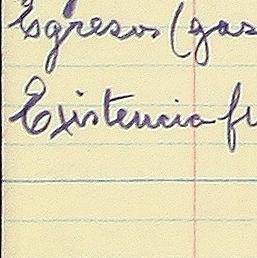 Egresos (gas
Existencia fu